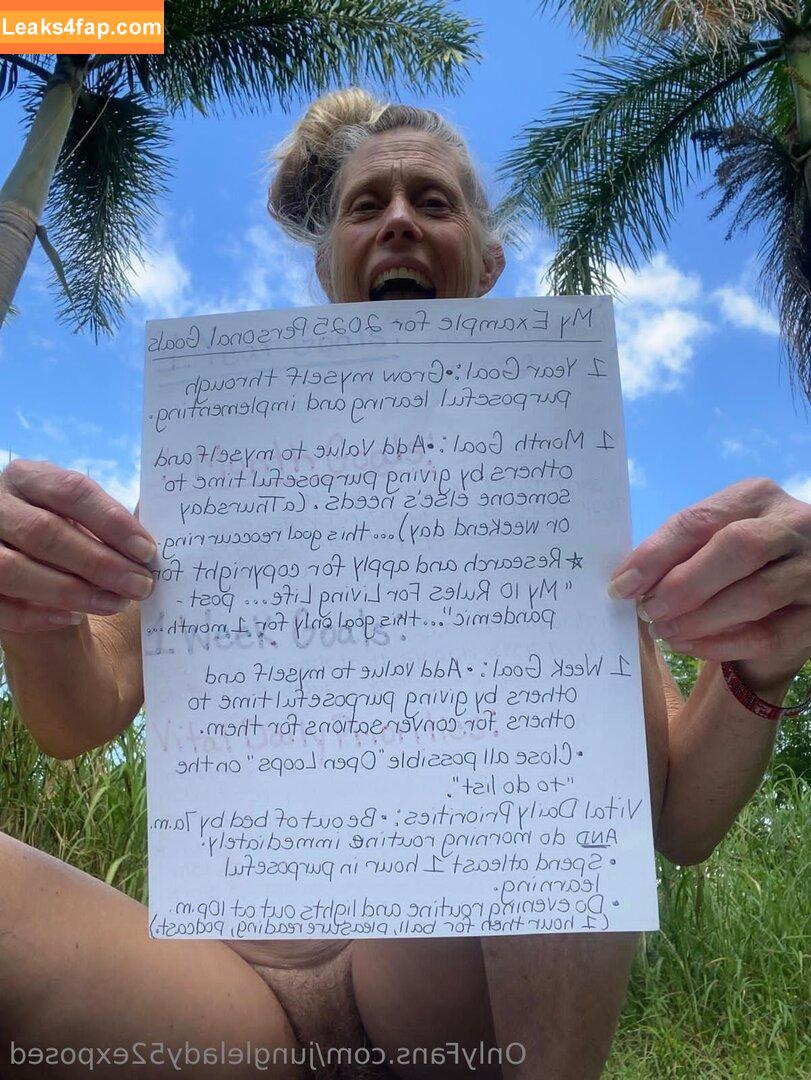 Leaks4fap.com
My Example for 2025 Personal Goals
1 Year Goal: • Grow myself through
purposeful learing and implementing.
1 Month Goal: • Add Value to myself and
others by giving purposeful time to
someone else's needs. (a Thursday
or weekend day)... this goal reoccurring.
★ Research and apply for copyright for
"My 10 Rules For Living Life... post -
pandemic"... this goal only for 1 month...
1 Week Goals:
1 Week Goal: • Add Value to myself and
others by giving purposeful time to
others for conversations for them.
Vital Daily Priorities:
• Close all possible "Open Loops" on the
"to do list".
Vital Daily Priorities: • Be out of bed by 7a.m.
AND do morning routine immediately.
• Spend atleast 1 hour in purposeful
learning.
• Do evening routing and lights out at 10p.m.
(1 hour then for ball, pleasure reading, podcast.)
OnlyFans.com/junglelady52exposed